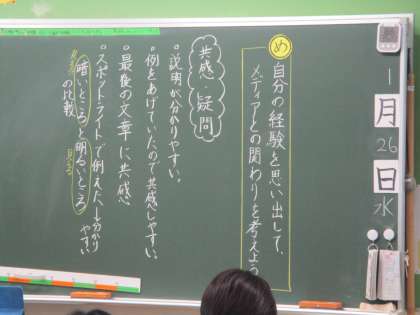 1月26日水
め
自分の経験を思い出して、
メディアとの関わりを考えよう
共感・疑問
・説明が分かりやすい。
・例をあげていたので共感しやすい。
・最後の文章に共感
・スポットライトで例えた→分かりやすい
暗いところと明るいところ
の比較